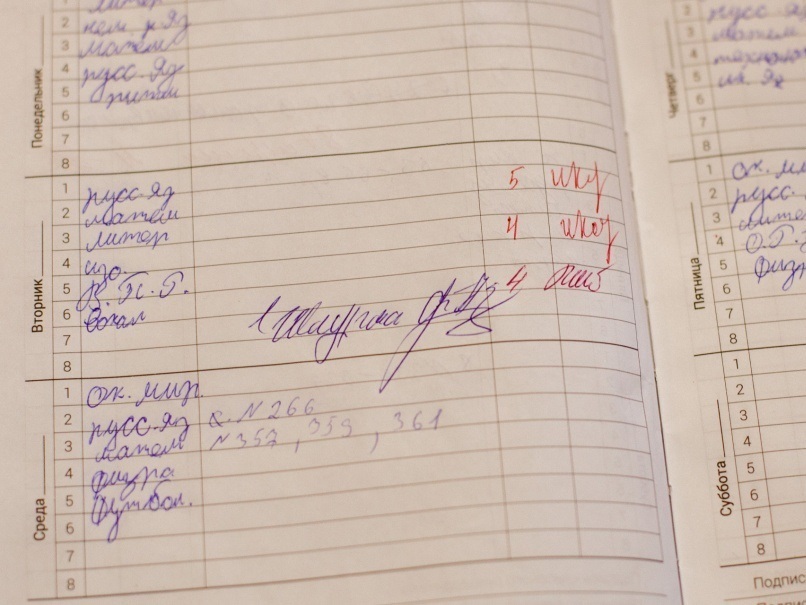 Понедельник
1 литер
2 нем. яз
3 матем
4 русс. яз
5 ритм
6
7
8
Вторник
1 русс. яз 5
2 матем
3 литер 4
4 изо.
5 4
6 вокал
7
8
Среда
1 ок. мир.
2 русс. яз №266
3 матем №357, 359, 361
4 физра
5 футбол.
6
7
8
Четверг
2 русс. яз
3 матем
4
5
6
7
8
Пятница
1 ок. ми
2 русс.
3 литер
4
5 физра
6
7
8
Суббота
1
2
3
4
5
6
7
8
Подпис